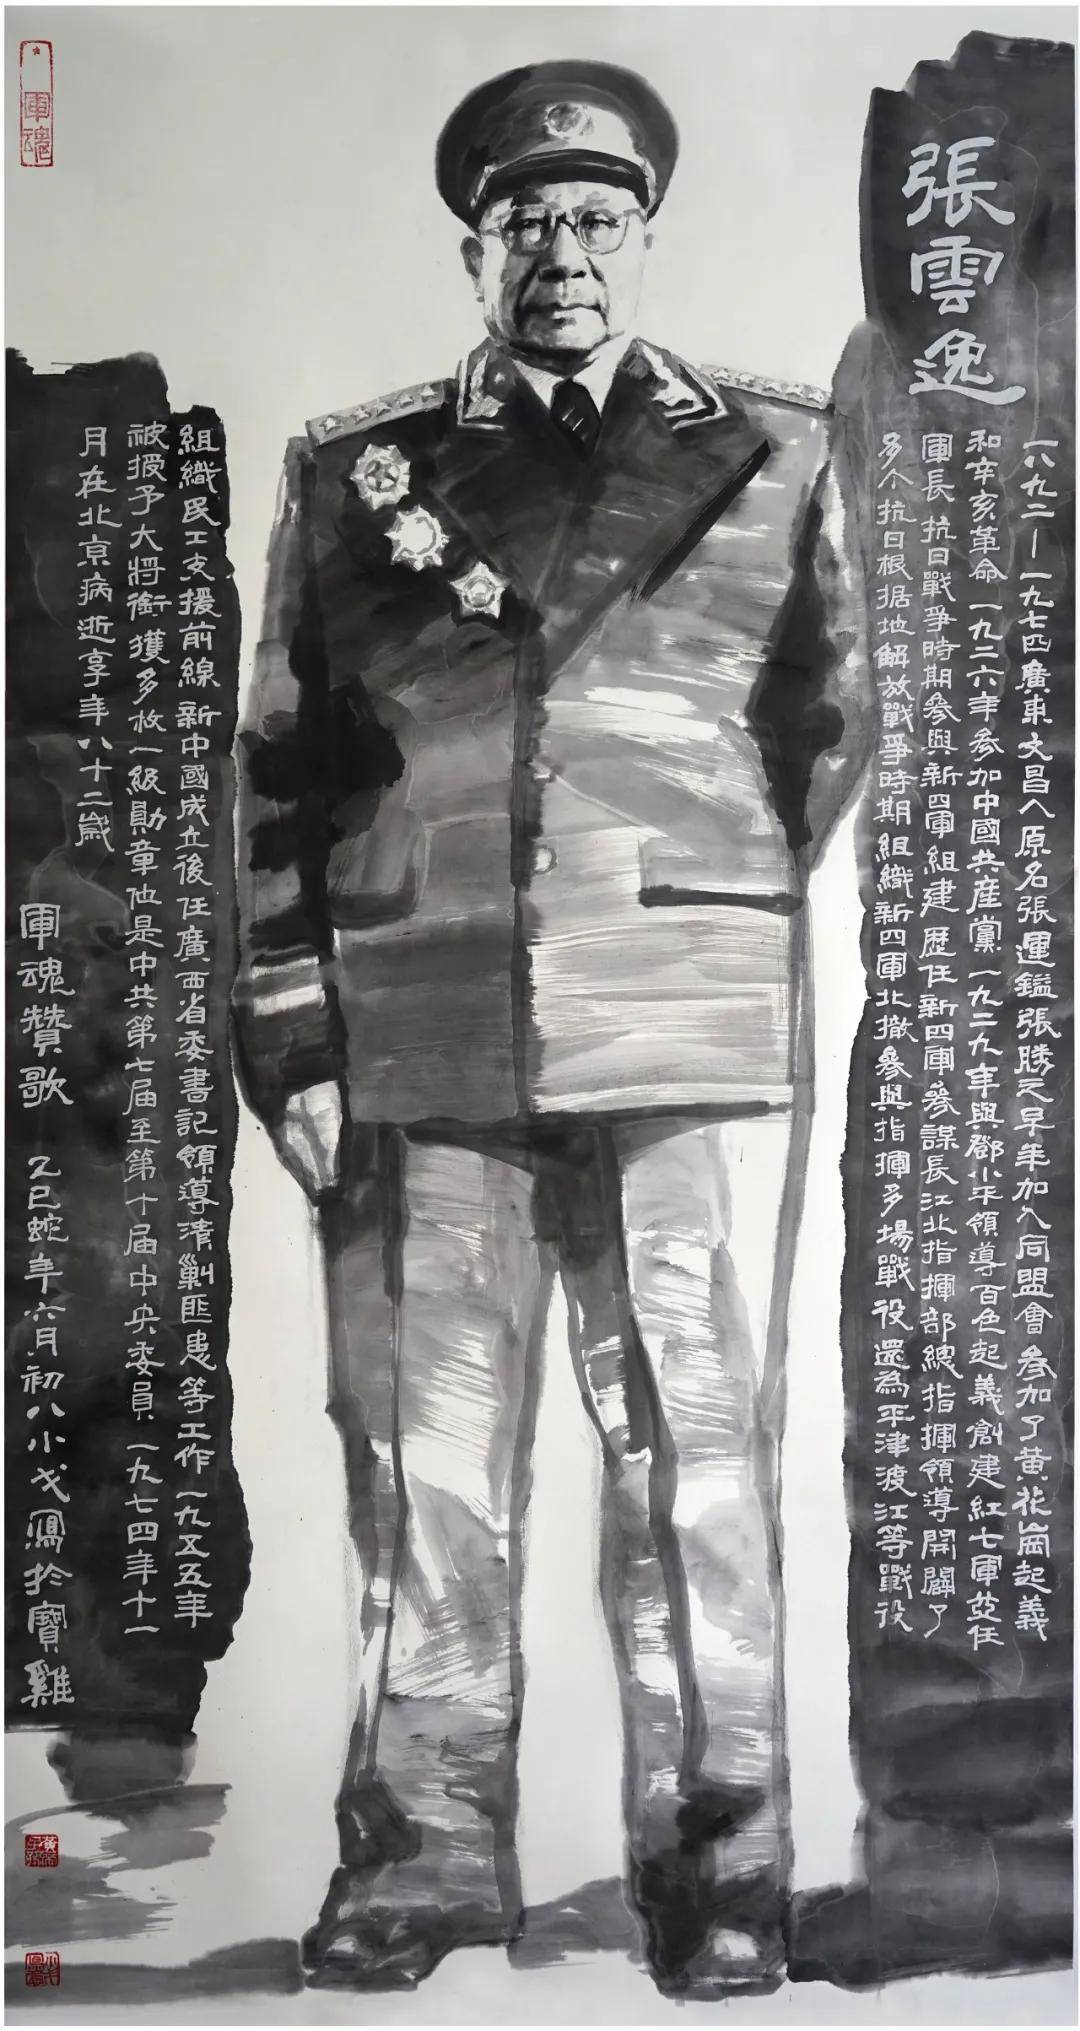 張雲逸
一八九二—一九七四廣東文昌人原名張運鎰張勝之早年加入同盟會參加了黄花崗起義
和辛亥革命一九二六年參加中國共産黨一九二九年與鄧小平領導百色起義創建紅七軍并任
軍長抗日戰爭時期參與新四軍組建歷任新四軍參謀長江北指揮部總指揮領導開闢了
多个抗日根据地解放戰爭時期組織新四軍北撤參與指揮多場戰役還為平津渡江等戰役
組織民工支援前線新中國成立後任廣西省委書記領導清剿匪患等工作一九五五年
被授予大將銜獲多枚一級勛章他是中共第七届至第十届中央委員一九七四年十一
月在北京病逝享年八十二歲
軍魂贊歌 乙巳蛇年六月初八小戈寫於寶雞
軍魂